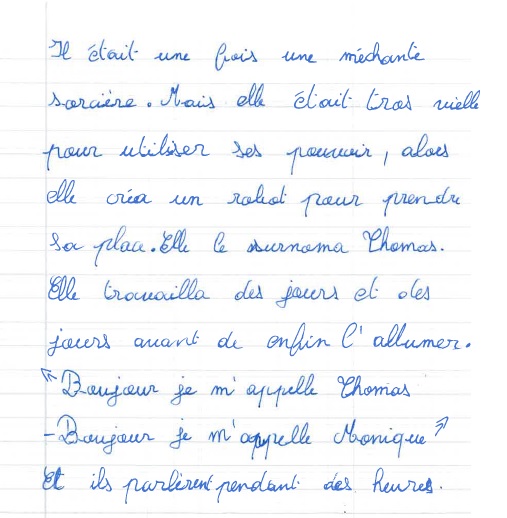 Il était une fois une méchante
sorcière. Mais elle était tros vielle
pour utiliser ses pouvoir, alors
elle créa un robot pour prendre
sa place. Elle le surnoma Thomas.
Elle travailla des jours et des
jours avant de enfin l'allumer.
"Boujour je m'appelle Thomas
-Boujour je m'appelle Monique"
Et ils parlèrent pendant des heures.